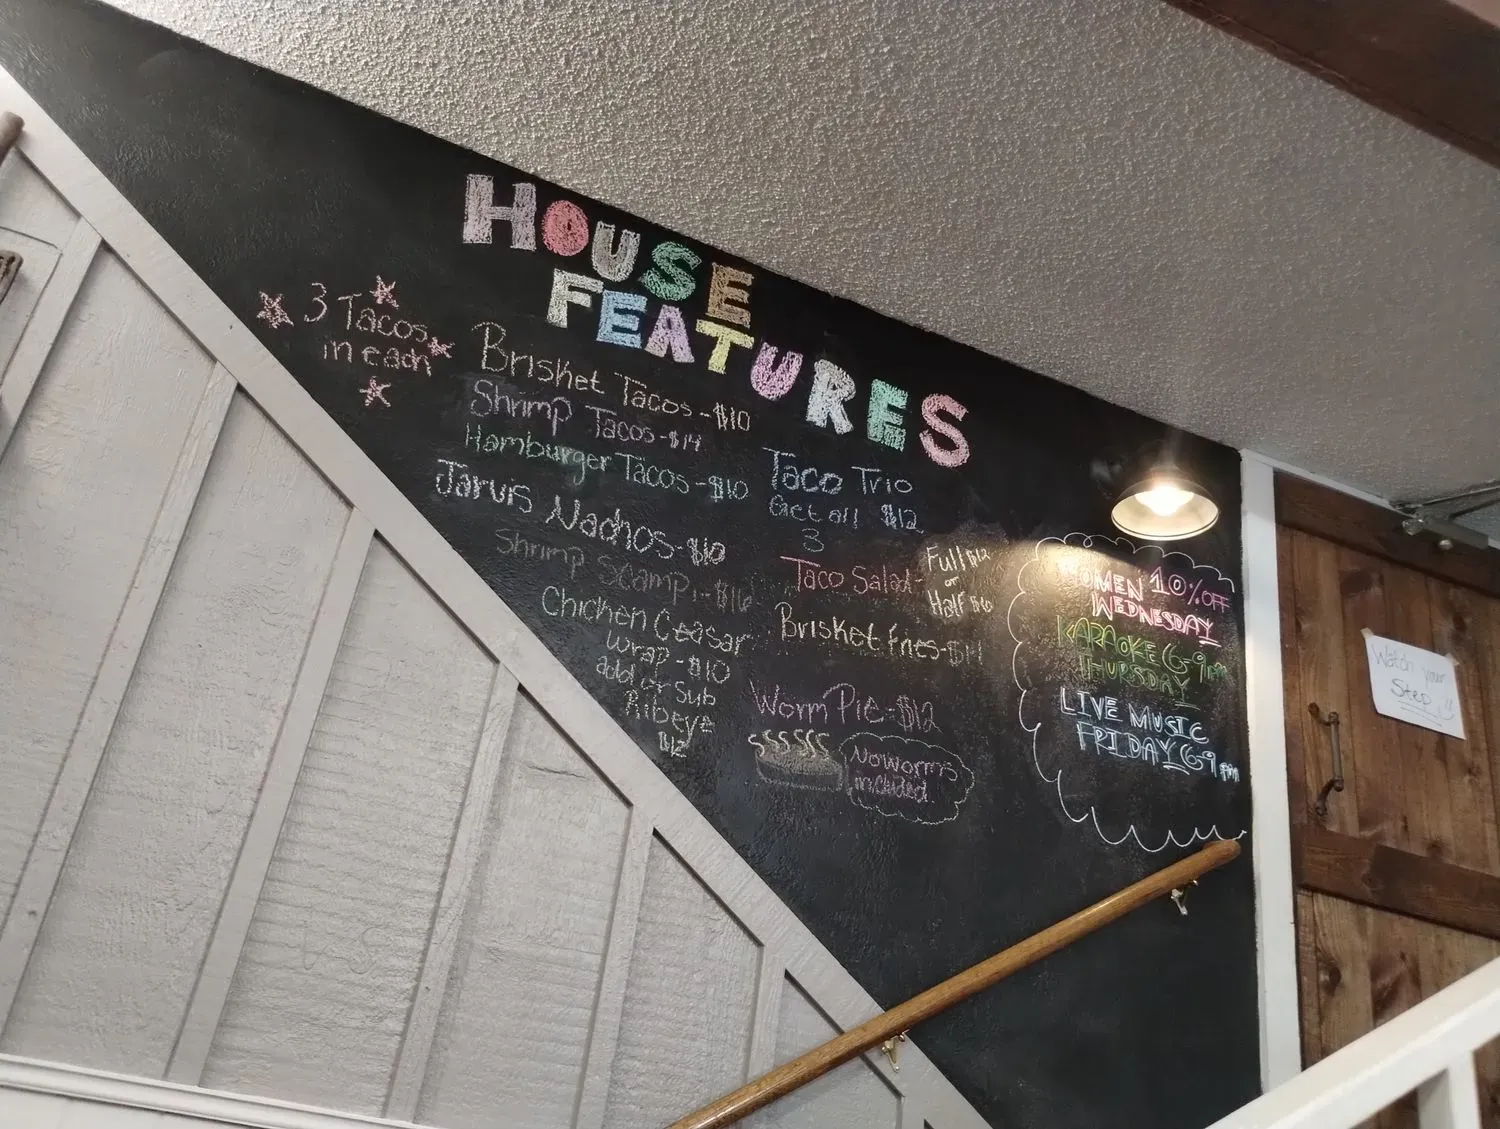 HOUSE
FEATURES
3 Tacos
in each
Brisket Tacos - $10
Shrimp Tacos - $14
Hamburger Tacos - $10
Jarvis Nachos - $10
Shrimp Scampi - $16
Chicken Ceasar
Wrap - $10
add or sub
Ribeye
$12
Taco Trio
Get all $12
3
Taco Salad -
Full $12
or
Half $6
Brisket Fries - $14
Worm Pie - $12
No worms
included
WOMEN 10% OFF
WEDNESDAY
KARAOKE 6-9pm
THURSDAY
LIVE MUSIC
FRIDAY 6-9 pm
Watch your
Step!!